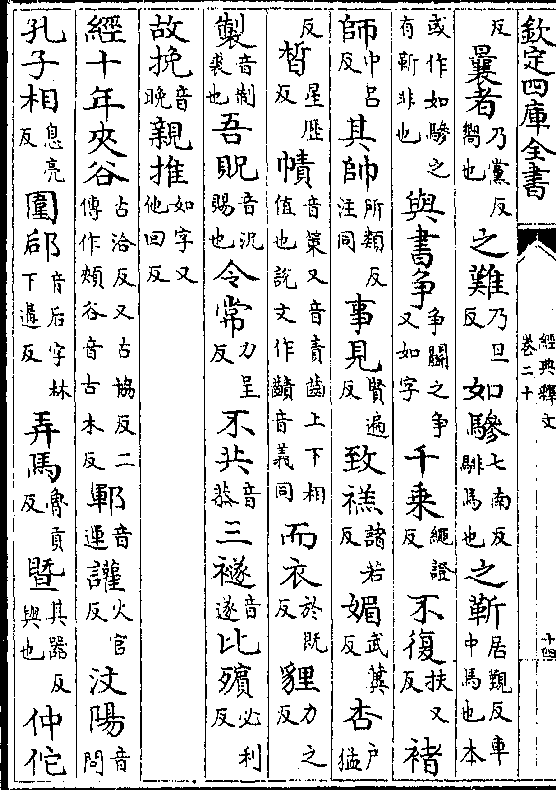 欽定四庫全書
經典釋文
卷二十
十四
反曩者乃黨反嚮也之難乃旦反如驂七南反騑馬也之靳居覲反車中馬也本
或作如驂之有靳非也與書争争鬭之争又如字千乗繩證反不復扶又反褚
師中吕反其帥所類反注同事見賢遍反致禚諸若反媚武冀反杏户猛
反晳星歷反幘音策又音責齒上下相值也説文作䶦音義同而衣於既反貍力之反
製音制裘也吾貺音况賜也令常力呈反不共音恭三襚音遂比殯必利反
故挽音晚親推如字又他回反
經十年夾谷古洽反又古協反二傳作頰谷音古木反鄆音運讙火官反汶陽音問
孔子相息亮反圍郈音后字林下遘反弄馬魯貢反曁其器反與也仲佗